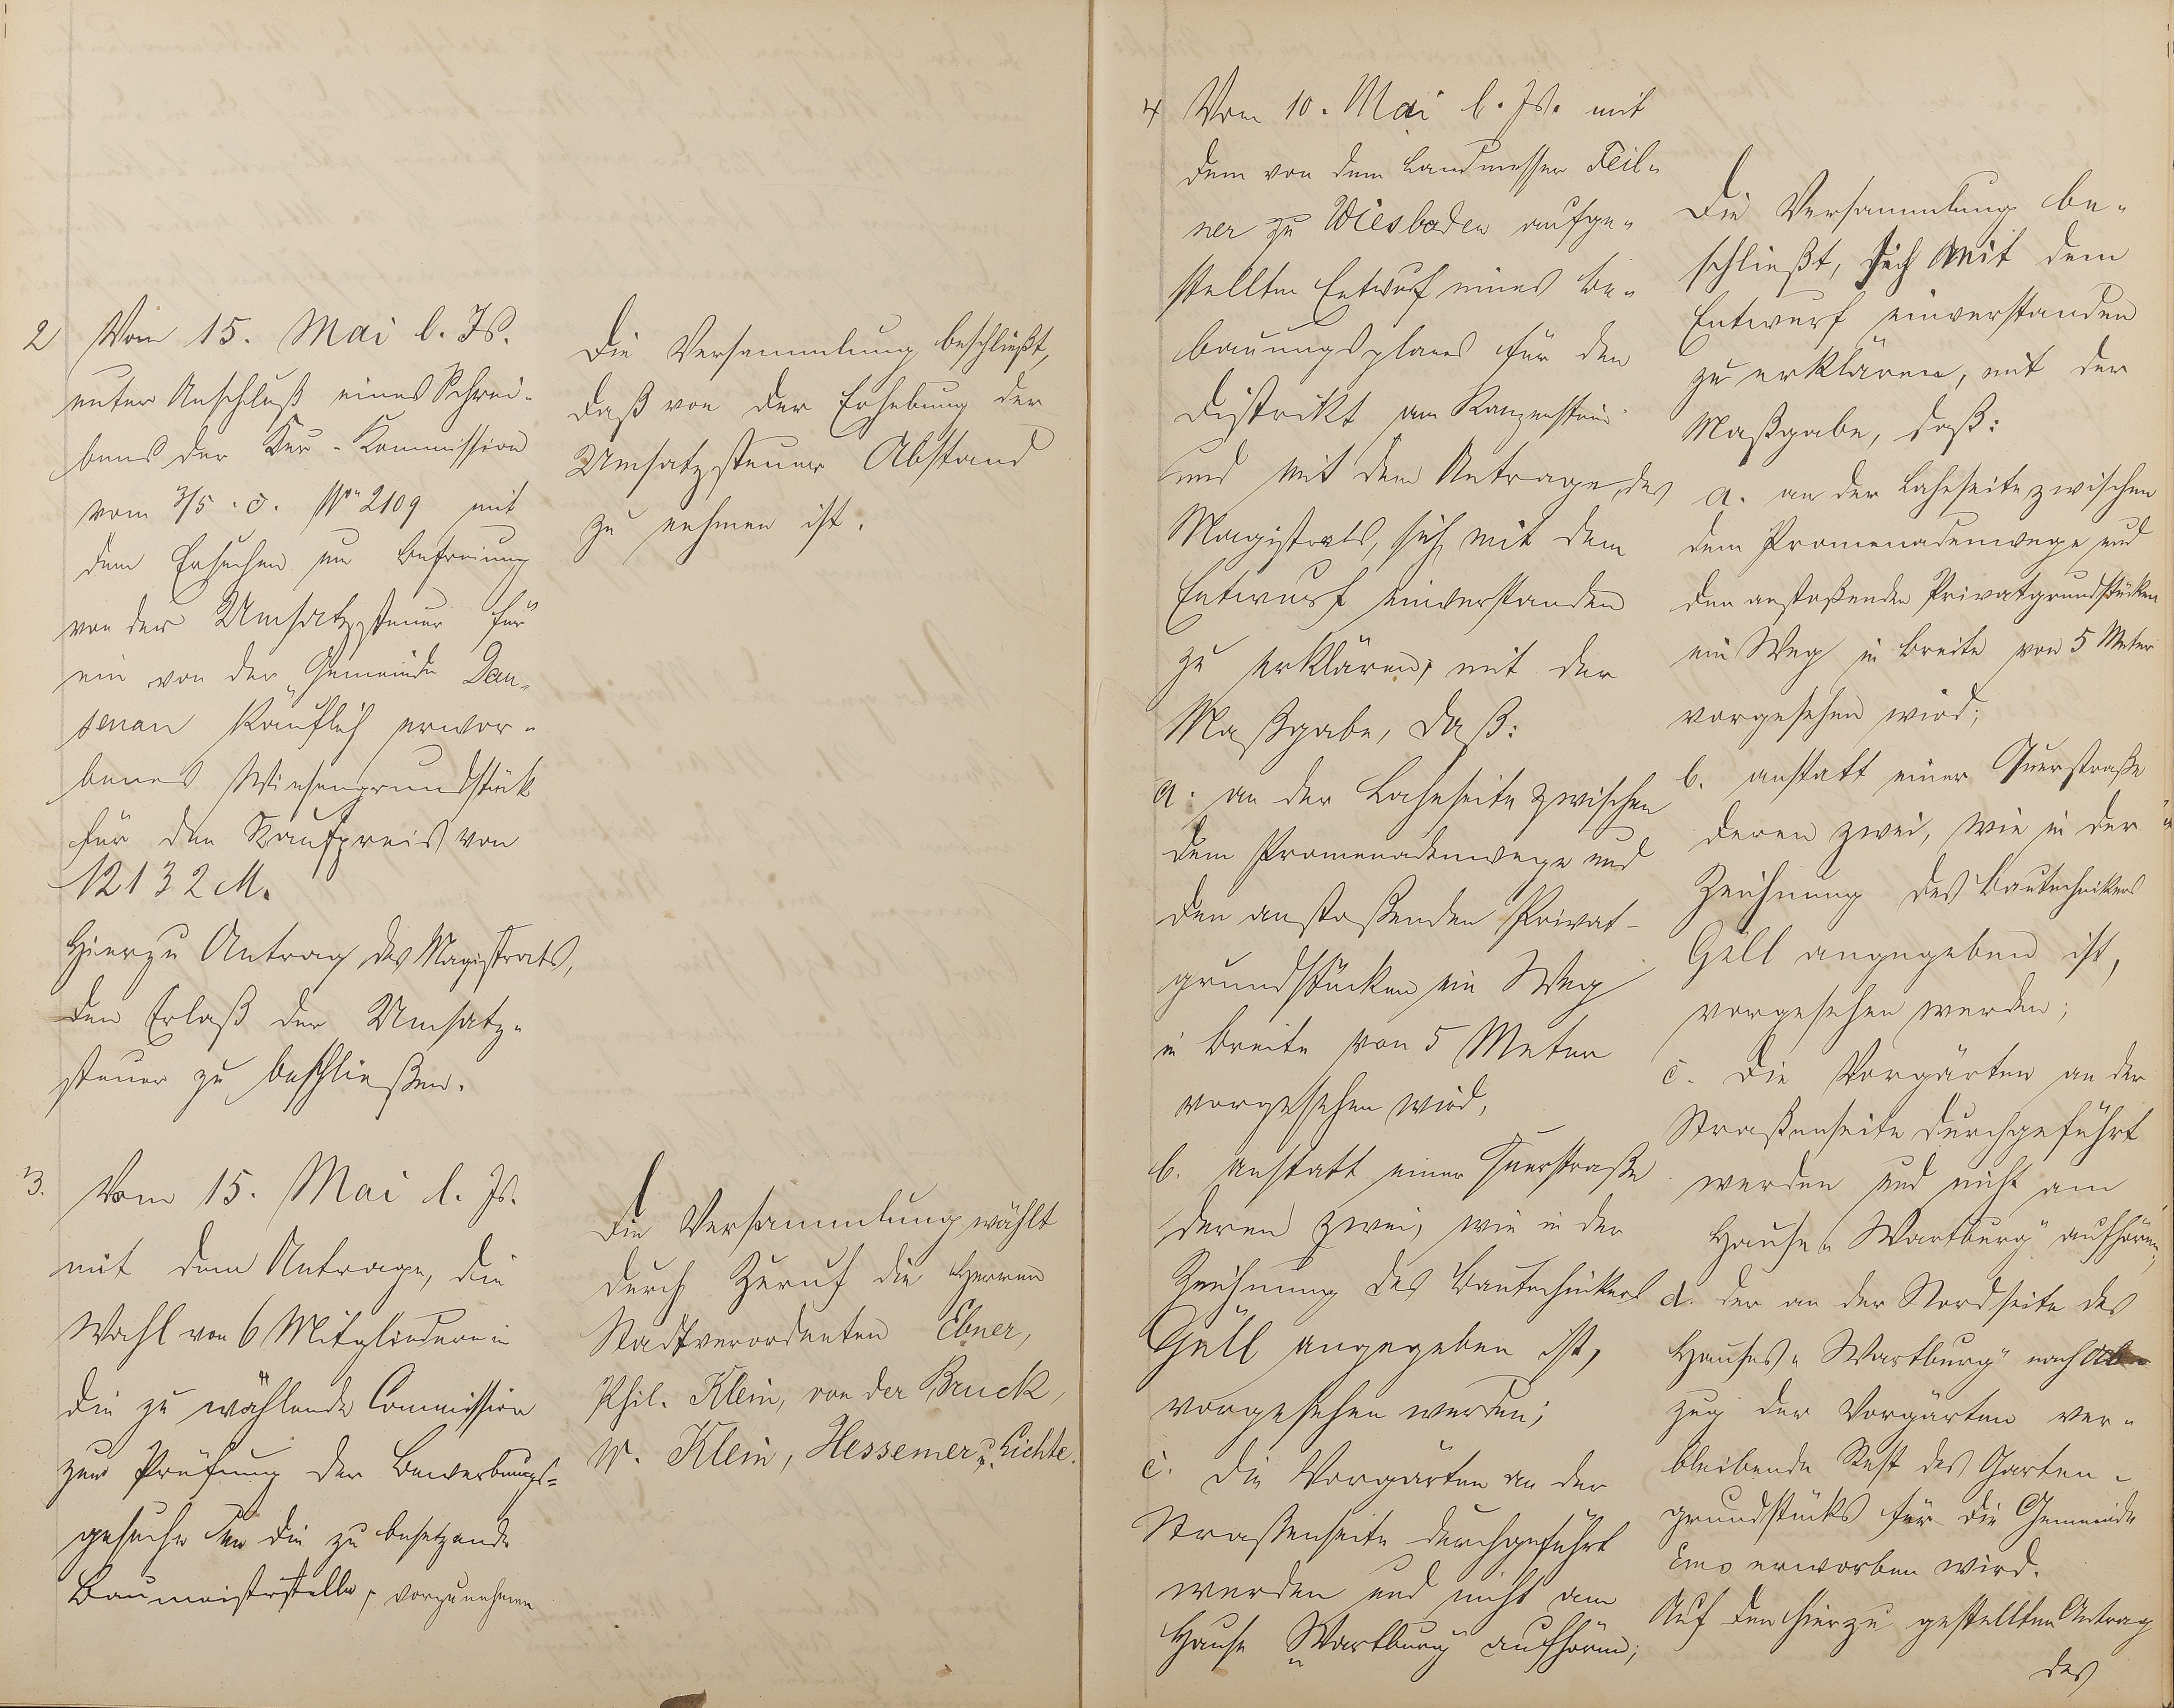 2 Vom 15. Mai l. Js.
unter Anschluß eines Schrei-
bens der Kur-Kommission
vom 3/5. d. No 2109 mit
dem Ersuchen um Befreiung
von der Umsatzsteuer für
ein von der „Gemeinde Dau-
senau käuflich erwor-
benes Wiesengrundstück
für den Kaufpreis von
12132 M.
Hierzu Antrag des Magistrats,
den Erlaß der Umsatz-
steuer zu beschließen.
Die Versammlung beschließt,
daß von der Erhebung der
Umsatzsteuer Abstand
zu nehmen ist.
3. Vom 15. Mai l. Js.
mit dem Antrage, die
Wahl von 6 Mitgliedern in
die zu wählende Commission
zur Prüfung der Bewerbungs-
gesuche um die zu besetzende
Baumeisterstelle, vorzunehmen
Die Versammlung wählt
durch Zuruf die Herren
Stadtverordneten Ebner,
Phil. Klein, von der Bruck,
W. Klein, Hessemer u. Lichte.
4 Vom 10. Mai l. Js. mit
dem von dem Landmesser Feil-
ner zu Wiesbaden aufge-
stellten Entwurf eines Be-
bauungsplanes für den
Distrikt am Kanzenstein
und mit dem Antrage des
Magistrats, sich mit dem
Entwurf einverstanden
zu erklären, mit der
Maßgabe, daß:
a. an der Lahnseite zwischen
dem Promenadenwege und
den anstoßenden Privat-
grundstücken ein Weg
in Breite von 5 Meter
vorgesehen wird,
b. anstatt einer Querstraße
deren zwei, wie in der
Zeichnung des Bautechnikers
Gell angegeben ist,
vorgesehen werden;
c. die Vorgärten an der
Straßenseite durchgeführt
werden und nicht am
Hause „Wartburg" aufhören;
Die Versammlung be-
schließt, sich mit dem
Entwurf einverstanden
zu erklären, mit der
Maßgabe, daß:
a. an der Lahnseite zwischen
dem Promenadenwege und
den anstoßenden Privatgrundstücken
ein Weg in Breite von 5 Meter
vorgesehen wird;
b. anstatt einer Querstraße
deren zwei, wie in der
Zeichnung des Bautechnikers
Gell angegeben ist,
vorgesehen werden;
c. die Vorgärten an der
Straßenseite durchgeführt
werden und nicht am
Hause „Wartburg" aufhören;
d. der an der Nordseite des
Hauses „Wartburg" nach Ab-
zug der Vorgärten ver-
bleibende Rest des Garten-
grundstücks für die Gemeinde
Ems erworben wird.
Auf den hierzu gestellten Antrag
des